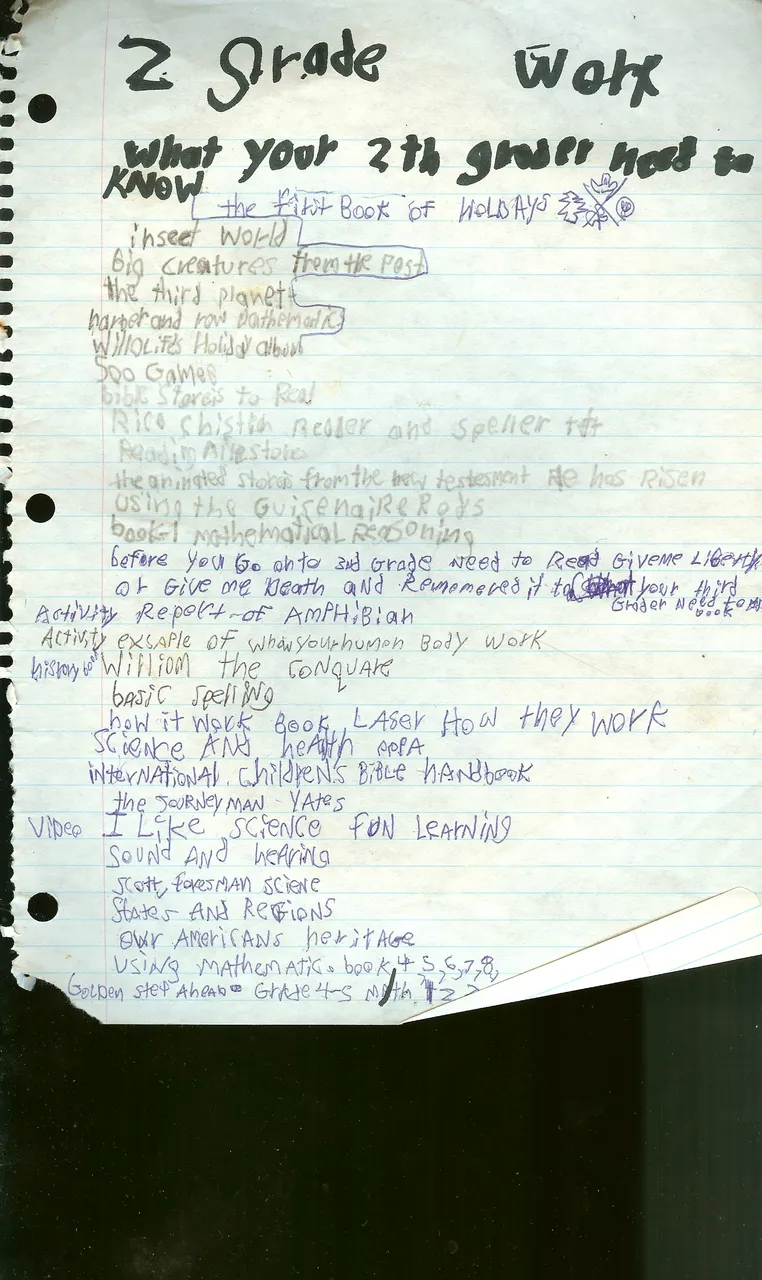 2 Grade Work
What your 2th grader need to
KNOW
the first Book of HOLDAYS
insect world
Big creatures from the Past
the third planet
harper and row mathematic
Holiday album
500 Games
bible Storeis to Read
Rico Reader and Speller
Reading Milestone
the animated stories from the new testesment He has Risen
using the GuisenaiRe Rods
book-1 mathematical Reasoning
before you Go onto 3rd Grade Need to Read Giveme Liberty
or Give me Death and Rememered it to your third
Grader Need to
book
Activity Repert-of AMPHiBian
Activity exsaple of whowyourhuman Body Work
history book William the conquare
basic spelling
how it work Book LASer How they work
Science And heAlth
international children's BiBle handbook
the JOURNeyMAN YAtes
Video I Like science FUN LeARNiNG
Sound AND heAring
scott, foresman sciene
StAtes AND ReGiONS
Our AmericANs heritAGe
Using mathematic. book 4, 5, 6, 7, 8,
Golden step Ahead Grade 4-5 Math 1 2